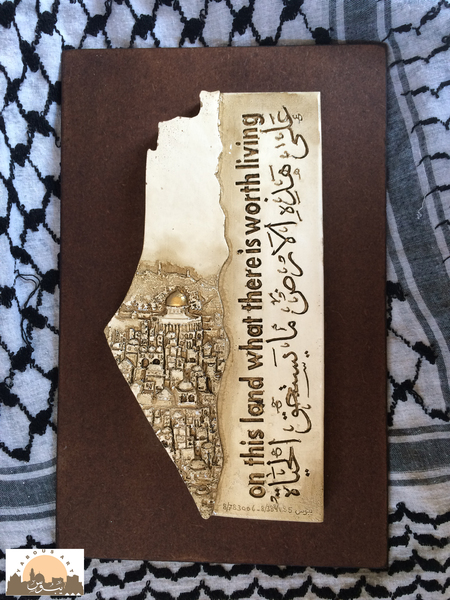 on this land what there is worth living
عَلَى هَذِهِ الأَرْضِ مَا يَسْتَحِقُّ الحَيَاةَ
YABOUS ART
يبوس